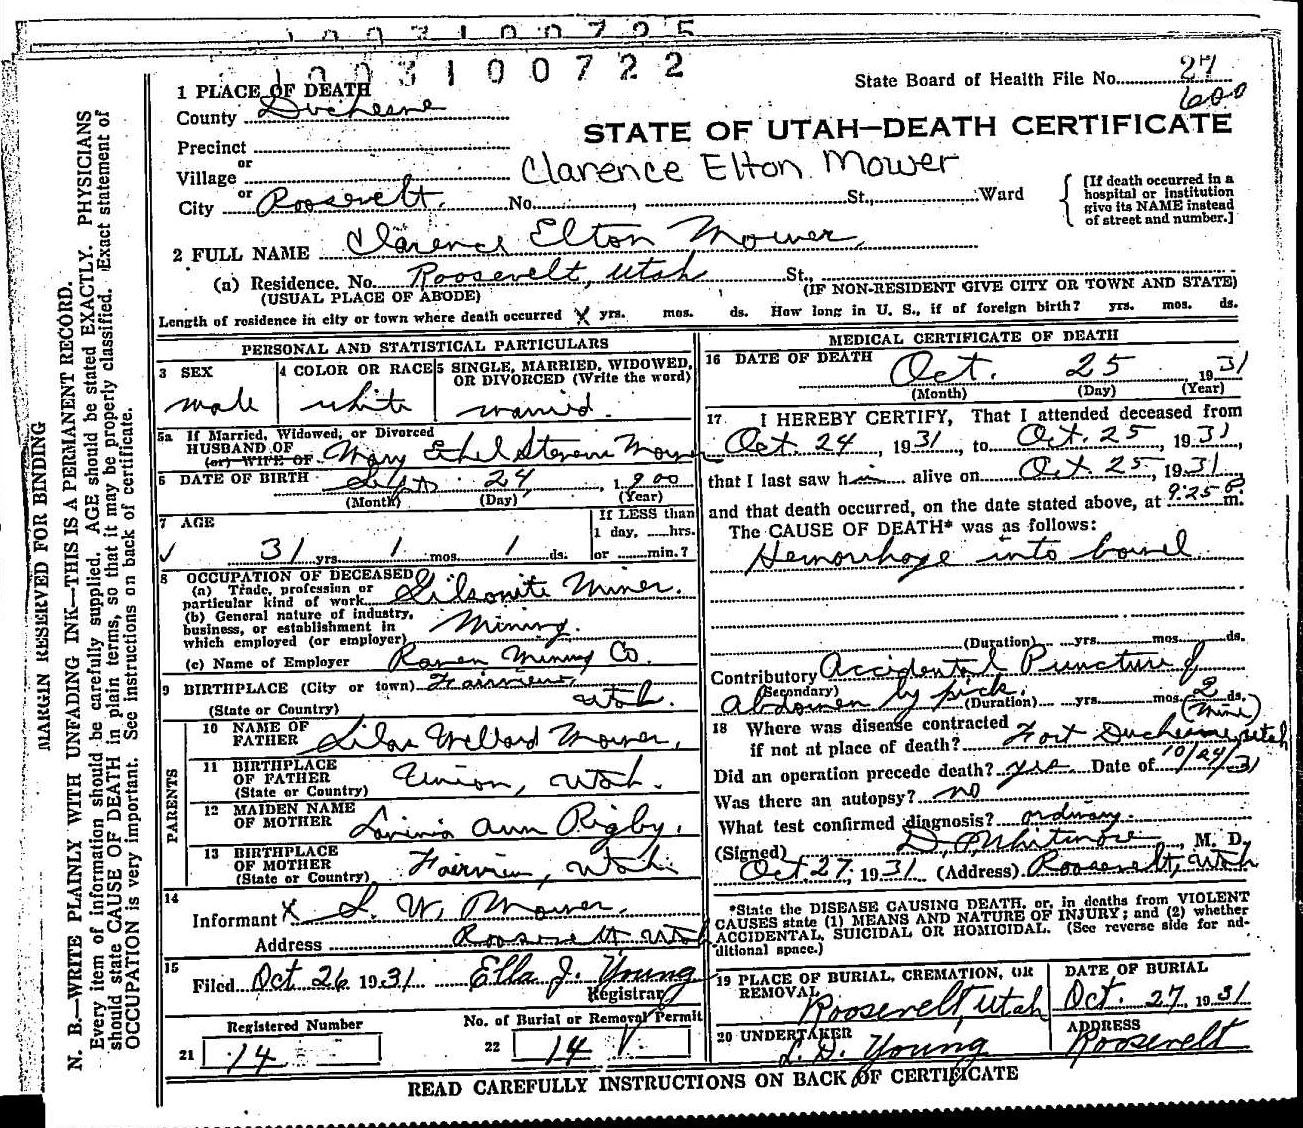 1003100725
1003100722
State Board of Health File No. 27
600
1 PLACE OF DEATH
County Duchesne
STATE OF UTAH—DEATH CERTIFICATE
Precinct
or
Village
Clarence Elton Mower
or
City Roosevelt. No. , St., Ward
[If death occurred in a hospital or institution give its NAME instead of street and number.]
2 FULL NAME Clarence Elton Mower,
(a) Residence. No. Roosevelt, Utah St.,
(USUAL PLACE OF ABODE) (IF NON-RESIDENT GIVE CITY OR TOWN AND STATE)
Length of residence in city or town where death occurred X yrs. mos. ds. How long in U. S., if of foreign birth? yrs. mos. ds.
PERSONAL AND STATISTICAL PARTICULARS
3 SEX 4 COLOR OR RACE 5 SINGLE, MARRIED, WIDOWED, OR DIVORCED (Write the word)
male white married.
5a If Married, Widowed, or Divorced
HUSBAND OF
(or) WIFE OF Mary Ethel Stevens Mower
6 DATE OF BIRTH Sept 24, 1900
(Month) (Day) (Year)
7 AGE
31 yrs. 1 mos. 1 ds.
If LESS than
1 day, hrs.
or min.?
8 OCCUPATION OF DECEASED
(a) Trade, profession or
particular kind of work Gilsonite Miner.
(b) General nature of industry,
business, or establishment in
which employed (or employer) Mining.
(c) Name of Employer Raven Mining Co.
9 BIRTHPLACE (City or town) Fairview,
(State or Country) Utah.
PARENTS
10 NAME OF
FATHER Silas Willard Mower,
11 BIRTHPLACE
OF FATHER
(State or Country) Union, Utah.
12 MAIDEN NAME
OF MOTHER Lavinia Ann Rigby.
13 BIRTHPLACE
OF MOTHER
(State or Country) Fairview, Utah.
14
Informant X S. W. Mower,
Address Roosevelt Utah
15
Filed Oct 26 1931 Ella J. Young
Registrar
Registered Number No. of Burial or Removal Permit
21 14 22 14
MEDICAL CERTIFICATE OF DEATH
16 DATE OF DEATH Oct. 25 1931
(Month) (Day) (Year)
17 I HEREBY CERTIFY, That I attended deceased from
Oct. 24, 1931, to Oct. 25, 1931,
that I last saw him alive on Oct. 25, 1931
and that death occurred, on the date stated above, at 9:25 P m.
The CAUSE OF DEATH* was as follows:
Hemorrhage into bowel
(Duration) yrs. mos. ds.
Contributory Accidental Puncture of
(Secondary)
Abdomen by pick. (Duration) yrs. mos. 2 ds.
(Mine)
18 Where was disease contracted
if not at place of death? Fort Duchesne, Utah
Did an operation precede death? yes Date of 10/24/31
Was there an autopsy? no
What test confirmed diagnosis? ordinary.
(Signed) D. Whitmore, M. D.
Oct. 27, 1931 (Address) Roosevelt, Utah
*State the DISEASE CAUSING DEATH, or, in deaths from VIOLENT
CAUSES state (1) MEANS AND NATURE OF INJURY; and (2) whether
ACCIDENTAL, SUICIDAL OR HOMICIDAL. (See reverse side for ad-
ditional space.)
19 PLACE OF BURIAL, CREMATION, OR
REMOVAL Roosevelt, Utah
DATE OF BURIAL
Oct. 27, 1931
20 UNDERTAKER
L. D. Young
ADDRESS
Roosevelt
READ CAREFULLY INSTRUCTIONS ON BACK OF CERTIFICATE
MARGIN RESERVED FOR BINDING
N. B.—WRITE PLAINLY WITH UNFADING INK—THIS IS A PERMANENT RECORD.
Every item of information should be carefully supplied. AGE should be stated EXACTLY. PHYSICIANS
should state CAUSE OF DEATH in plain terms, so that it may be properly classified. Exact statement of
OCCUPATION is very important. See instructions on back of certificate.